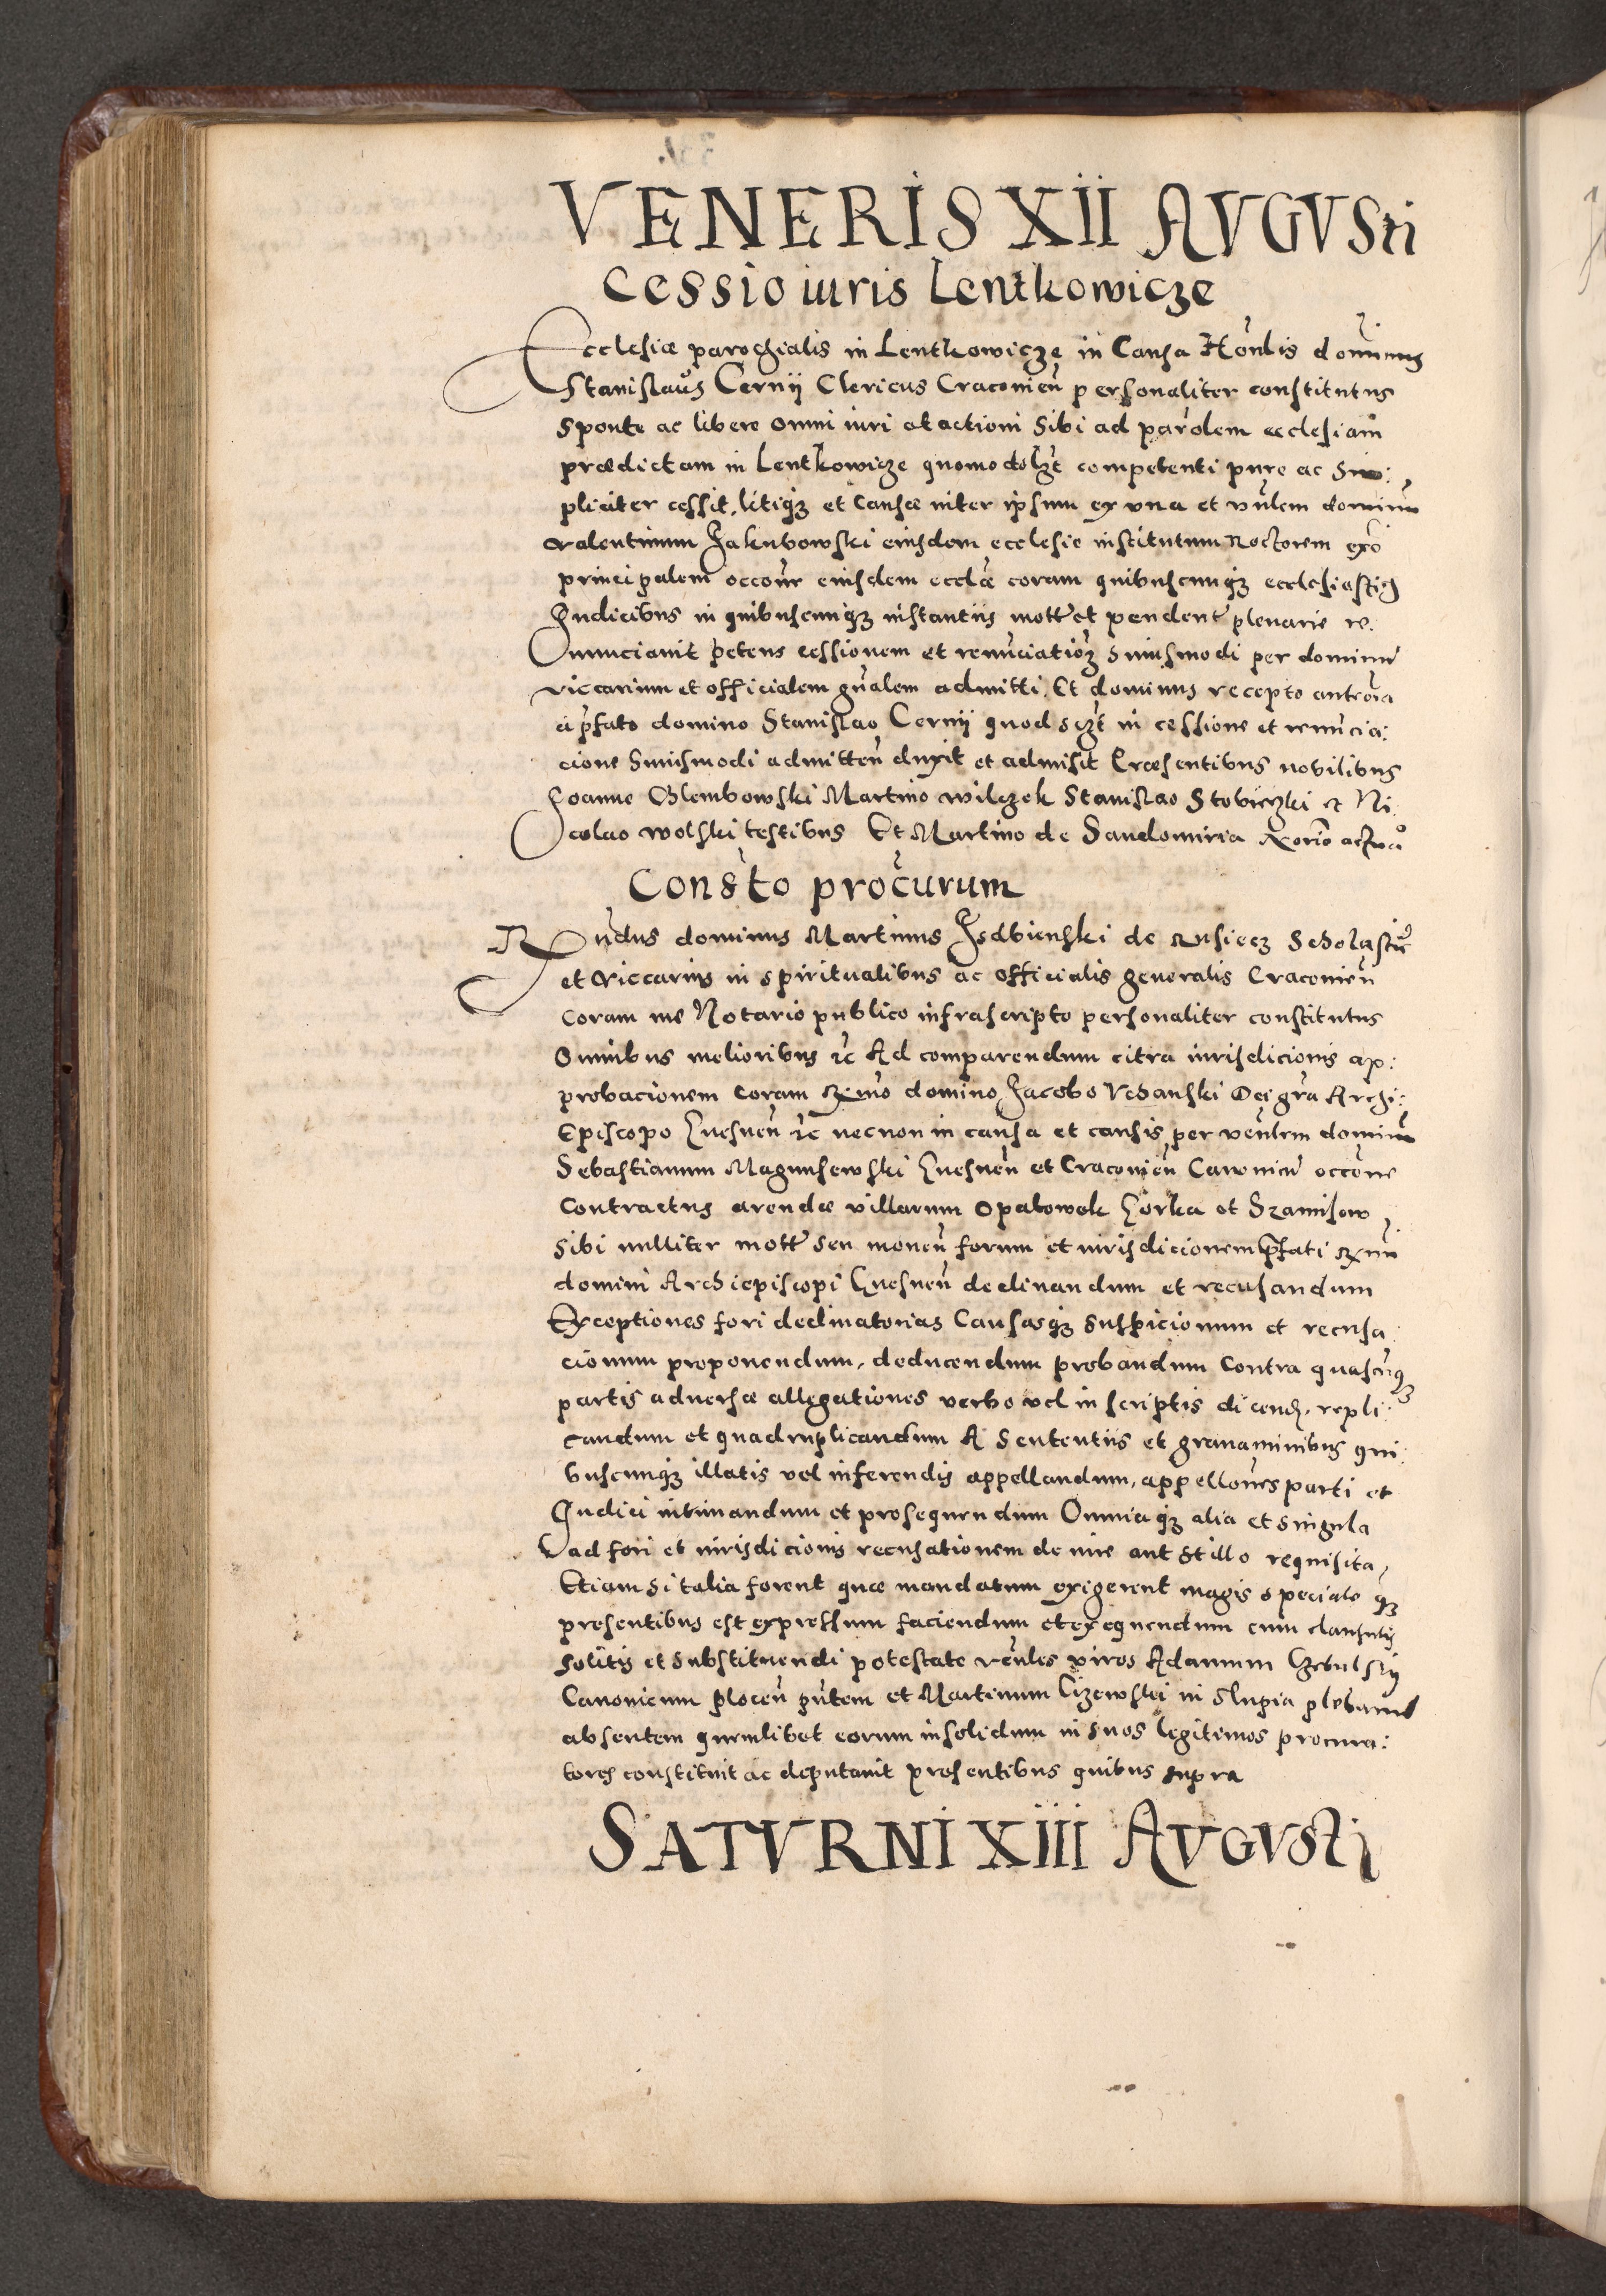 VENERIS XII AVGVSti
Cessio iuris Lentkowicze
Ecclesiæ parochialis in Lentkowicze in Causa Honlis dominus
Stanislaus Cernij Clericus Cracovien personaliter constitutus
sponte ac libere omni iuri et actioni sibi ad parolem ecclesiam
prædictam in Lentkowicze quomodolzt competenti pure ac sim:
pliciter cessit, litiqz et Causæ inter ipsum ex una et vnlem dominu
Valentinum Jakubowski eiusdem ecclesie institutum Rectorem exo
principalem occone eiusdem ecclæ coram quibuscunqz ecclesiastics
Iudicibus in quibuscunqz instantiis mott et pendent plenarie re:
nunciavit petens cessionem et renunciatioz huiusmodi per dominu
viccarium et officialem gnalem admitti. Et dominus recepto
a pfato domino Stanislao Cernij quod in cessione et renuncia:
cione huiusmodi admitten duxit et admisit Præsentibus nobilibus
Joanne Glembowski Martino wilczek Stanislao Stobieczki et Ni:
colao wolski testibus Et Martino de Sandomiria Norio actuao
Consto procurum
Rndus dominus Martinus Isdbienski de Rusiecz Scholastic
et viccarius in spiritualibus ac officialis generalis Cracovien
coram me Notario publico infrascripto personaliter constitutus
omnibus melioribus etc Ad comparendum citra iurisdicionis ap:
probacionem coram Rxmo domino Jacobo Vchanski Dei gra Archi:
Episcopo Gnesnen etc necnon in causa et causis per venlem dominu
Sebastianum Magnuschewski Gnesnen et Cracovien Canonicu occone
Contractus arendæ villarum Opatowek Gorka et Szamisow
sibi nulliter mott seu monen forum et iurisdicionem pfati Rxmi
domini Archiepiscopi Gnesnen declinandum et recusandum
Exceptiones fori declinatorias Causasqz suspicionum et recusa:
cionum proponendum, deducendum probandum contra quascuqz
partis adversæ allegationes verbo vel in scriptis dicend, repli:
candum et quadruplicandum A sententiis et gravaminibus qui:
buscunqz illatis vel inferendis appellandum, appellones parti et
Iudici intimandum et prosequendum Omniaqz alia et singula
ad fori et iurisdicionis recusationem de iure aut stillo requisita,
Etiam si talia forent quæ mandatum exigerent magis speciale qz
presentibus est expressum faciendum et exequendum cum clausulis
solitis et substituendi potestate venles viros Adamum
Canonicum plocen pntem et Martinum Cizewski in Slupia plebanum
absentem quemlibet eorum insolidum in suos legitimos procura:
tores constituit ac deputavit presentibus quibus supra
SATVRNI XIII AVGVSti